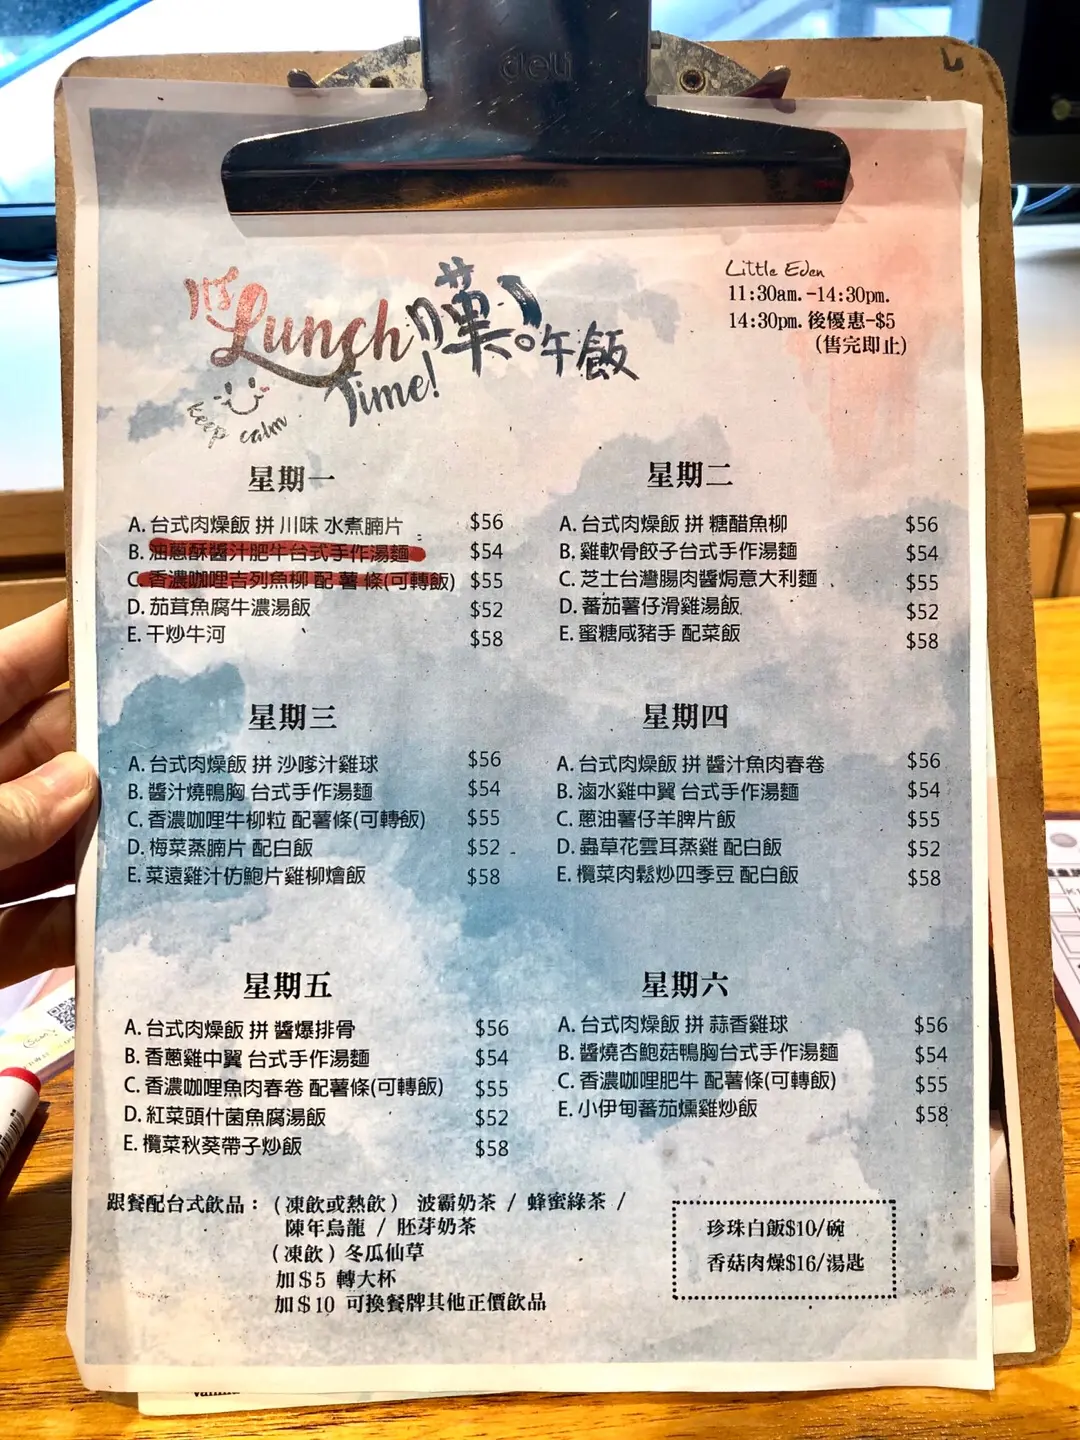 deli
Little Eden
11:30am.-14:30pm.
14:30pm.後優惠-$5
(售完即止)
Lunch
Time!
嘆。午飯
keep calm
星期一
A. 台式肉燥飯 拼 川味 水煮腩片 $56
B. 油蔥酥醬汁肥牛台式手作湯麵 $54
C. 香濃咖哩吉列魚柳 配 薯 條(可轉飯) $55
D. 茄茸魚腐牛濃湯飯 $52
E. 干炒牛河 $58
星期二
A. 台式肉燥飯 拼 糖醋魚柳 $56
B. 雞軟骨餃子台式手作湯麵 $54
C. 芝士台灣腸肉醬焗意大利麵 $55
D. 蕃茄薯仔滑雞湯飯 $52
E. 蜜糖咸豬手 配菜飯 $58
星期三
A. 台式肉燥飯 拼 沙嗲汁雞球 $56
B. 醬汁燒鴨胸 台式手作湯麵 $54
C. 香濃咖哩牛柳粒 配薯條(可轉飯) $55
D. 梅菜蒸腩片 配白飯 $52
E. 菜遠雞汁仿鮑片雞柳燴飯 $58
星期四
A. 台式肉燥飯 拼 醬汁魚肉春卷 $56
B. 滷水雞中翼 台式手作湯麵 $54
C. 蔥油薯仔羊脾片飯 $55
D. 蟲草花雲耳蒸雞 配白飯 $52
E. 欖菜肉鬆炒四季豆 配白飯 $58
星期五
A. 台式肉燥飯 拼 醬爆排骨 $56
B. 香蔥雞中翼 台式手作湯麵 $54
C. 香濃咖哩魚肉春卷 配薯條(可轉飯) $55
D. 紅菜頭什菌魚腐湯飯 $52
E. 欖菜秋葵帶子炒飯 $58
星期六
A. 台式肉燥飯 拼 蒜香雞球 $56
B. 醬燒杏鮑菇鴨胸台式手作湯麵 $54
C. 香濃咖哩肥牛 配薯條(可轉飯) $55
E. 小伊甸蕃茄燻雞炒飯 $58
跟餐配台式飲品：(凍飲或熱飲) 波霸奶茶 / 蜂蜜綠茶 /
陳年烏龍 / 胚芽奶茶
(凍飲)冬瓜仙草
加$5 轉大杯
加$10 可換餐牌其他正價飲品
珍珠白飯$10/碗
香菇肉燥$16/湯匙